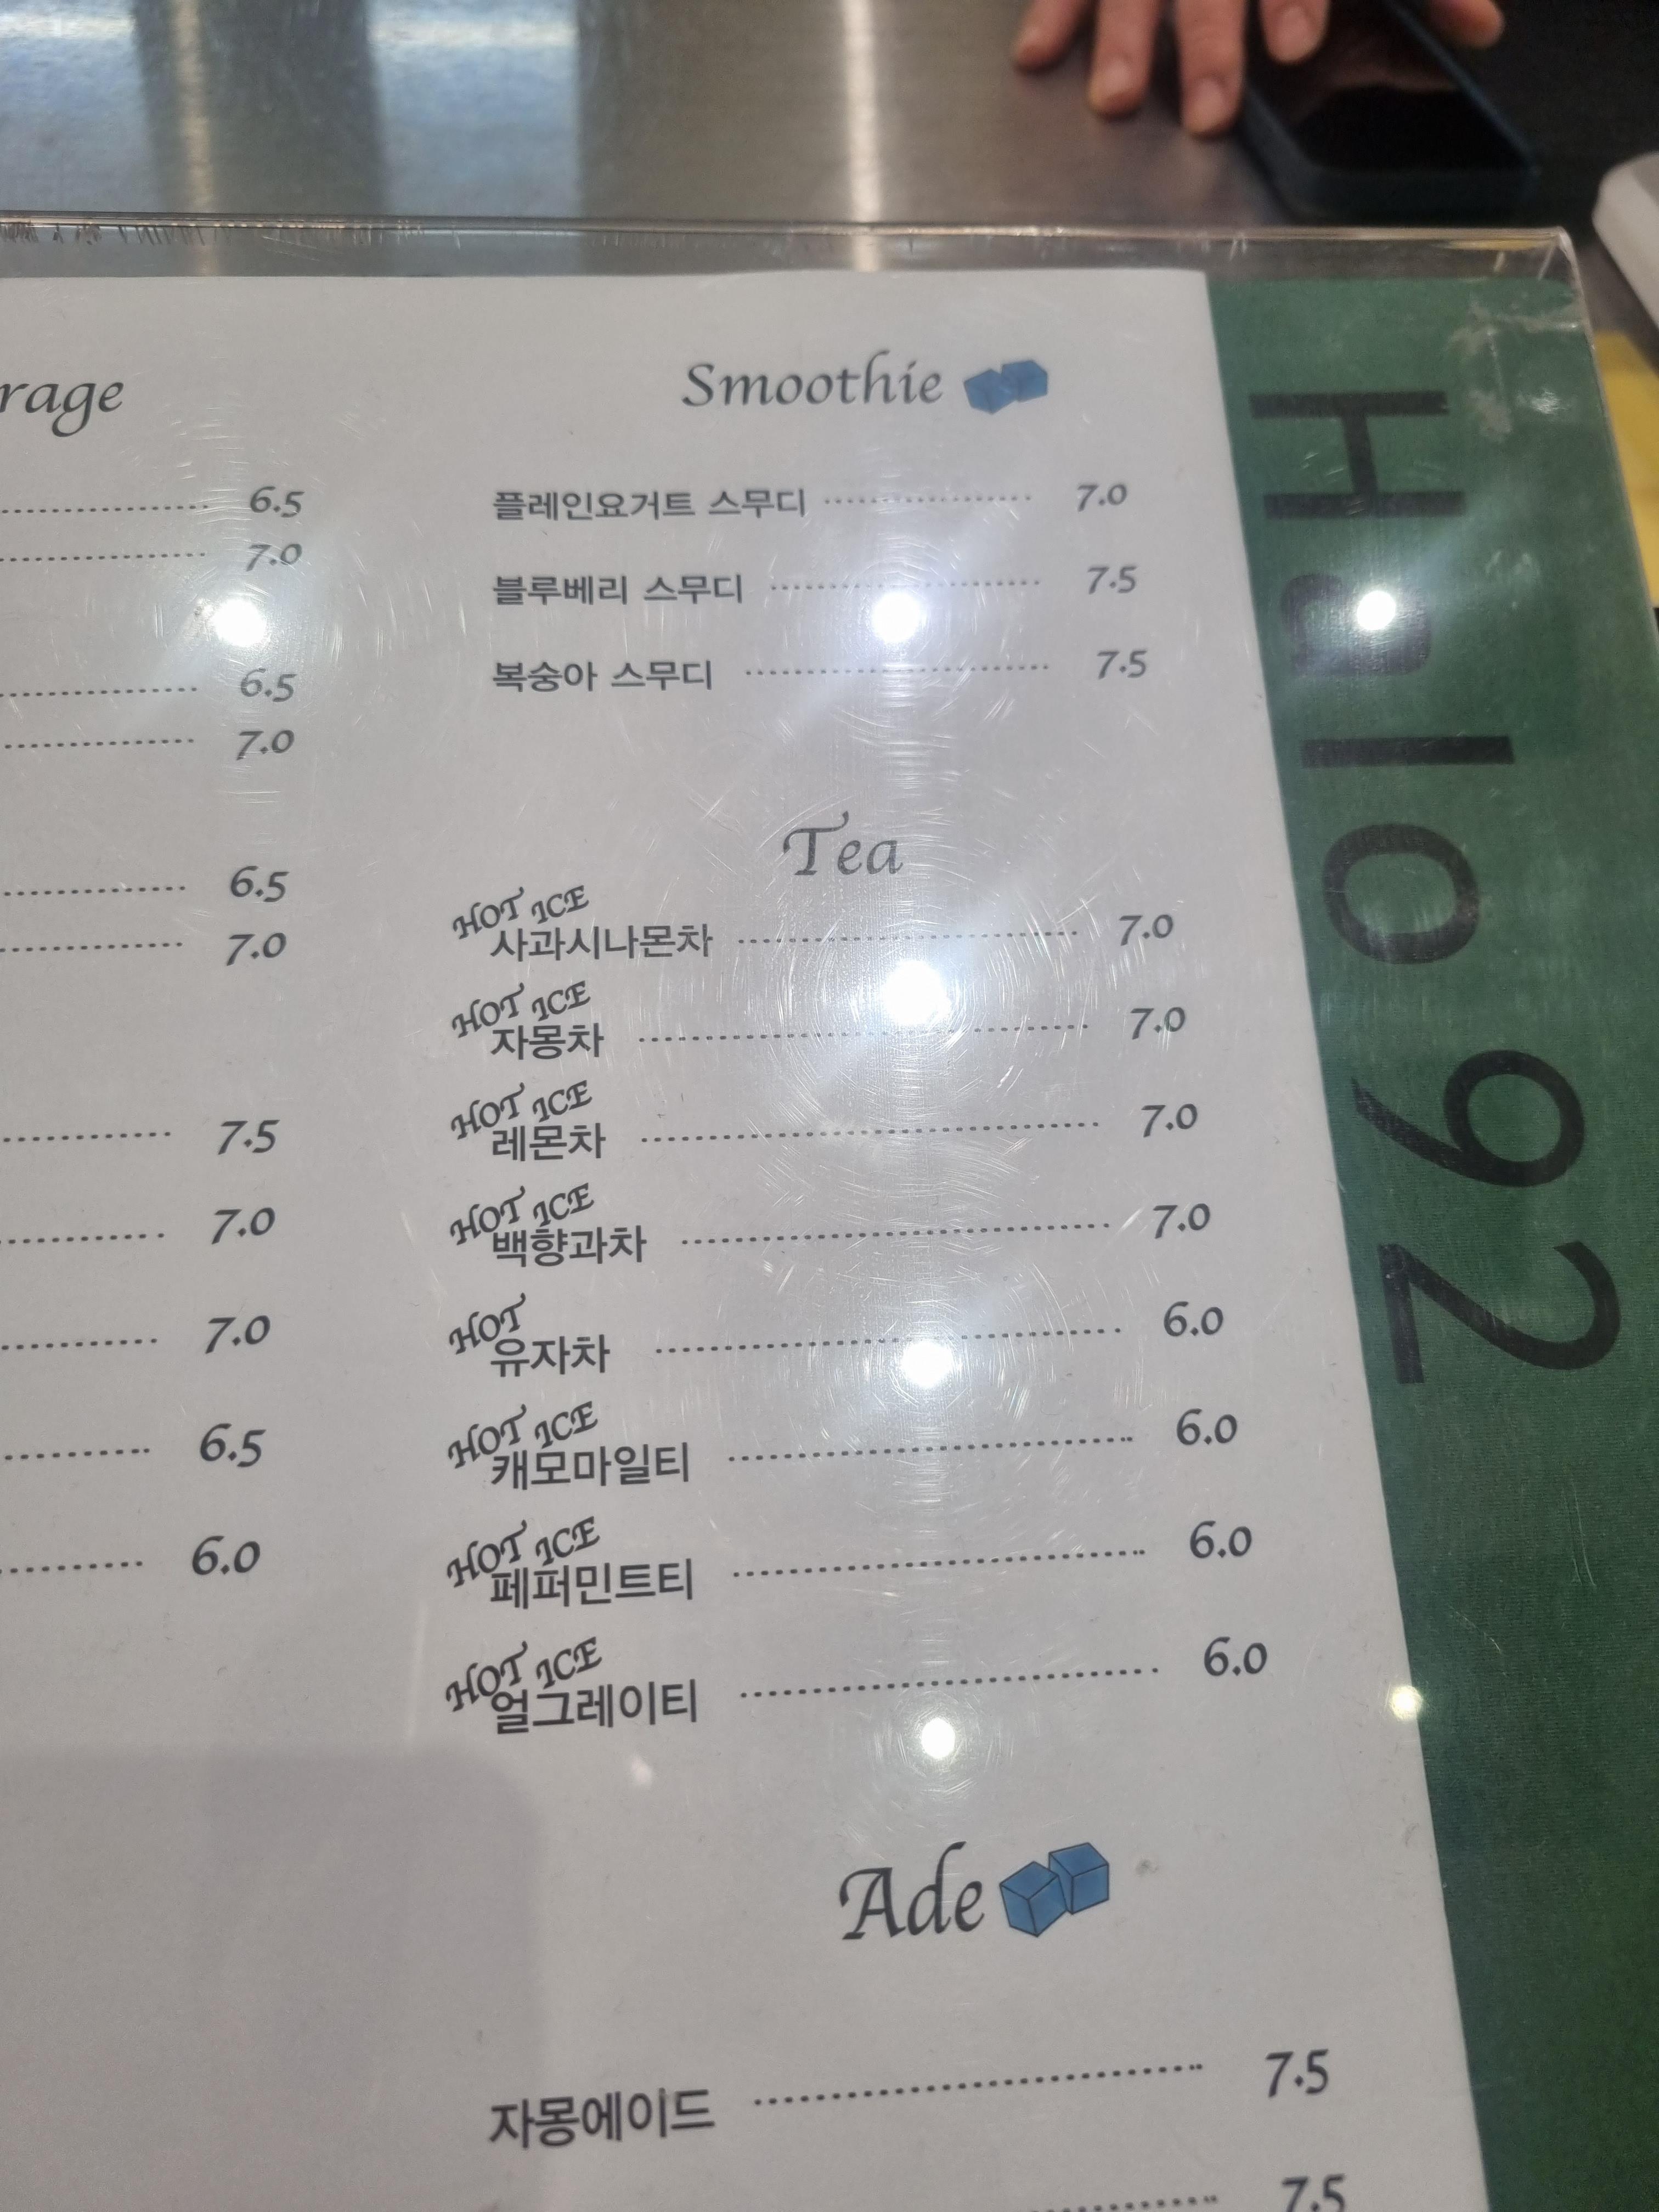 rage
6.5
7.0
6.5
7.0
6.5
7.0
7.5
7.0
7.0
6.5
6.0
Smoothie
플레인요거트 스무디 7.0
블루베리 스무디 7.5
복숭아 스무디 7.5
Tea
HOT ICE
사과시나몬차 7.0
HOT ICE
자몽차 7.0
HOT ICE
레몬차 7.0
HOT ICE
백향과차 7.0
HOT
유자차 6.0
HOT ICE
캐모마일티 6.0
HOT ICE
페퍼민트티 6.0
HOT ICE
얼그레이티 6.0
Ade
자몽에이드 7.5
7.5
Halo92